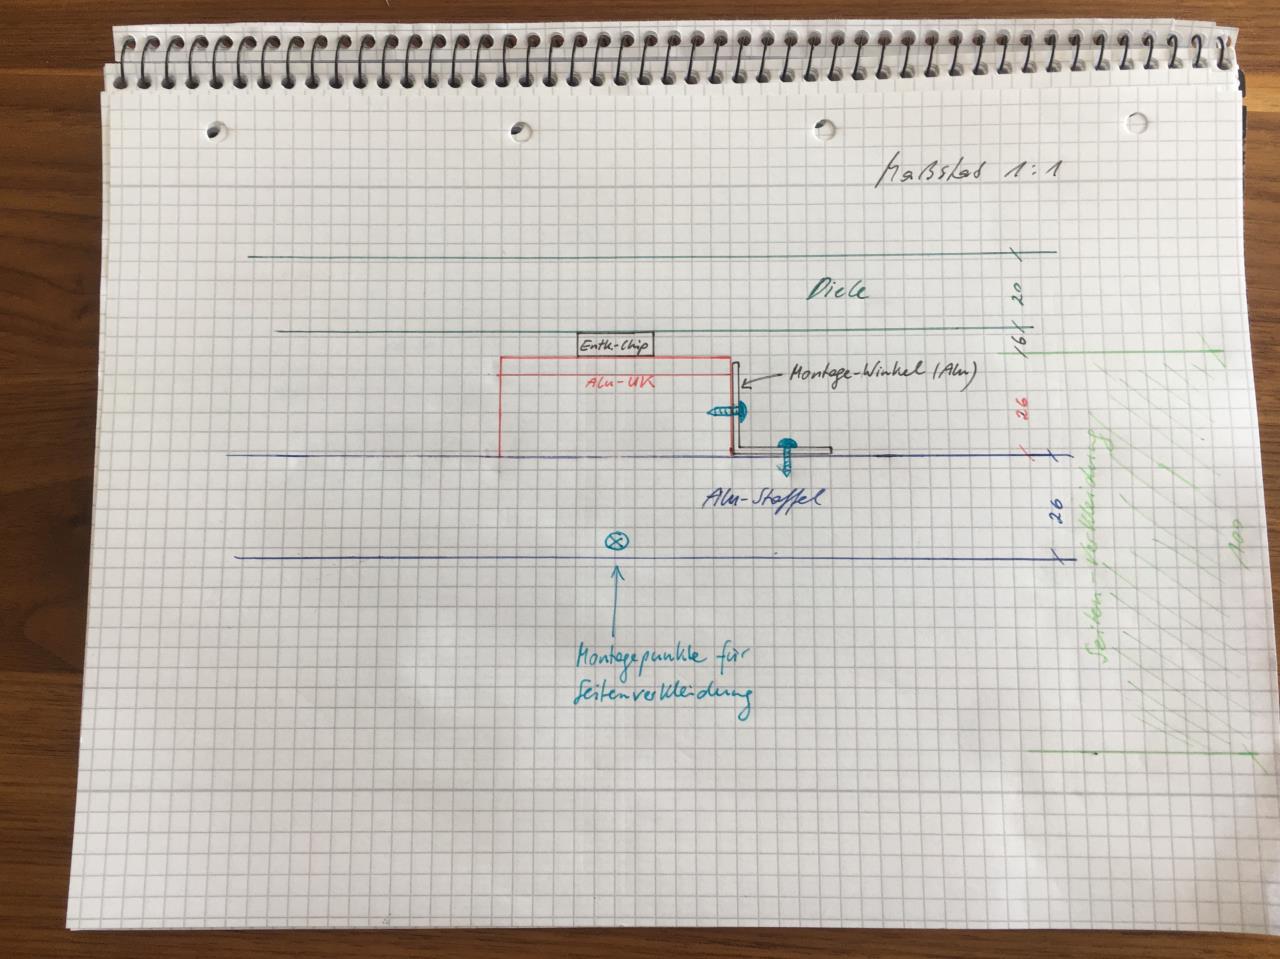 Maßstab 1:1
Diele
20
Entk-Chip
6
Alu-UK
Montage-Winkel (Alu)
26
Alu-Staffel
26
Seiten-Verkleidung
100
Montagepunkte für
Seitenverkleidung